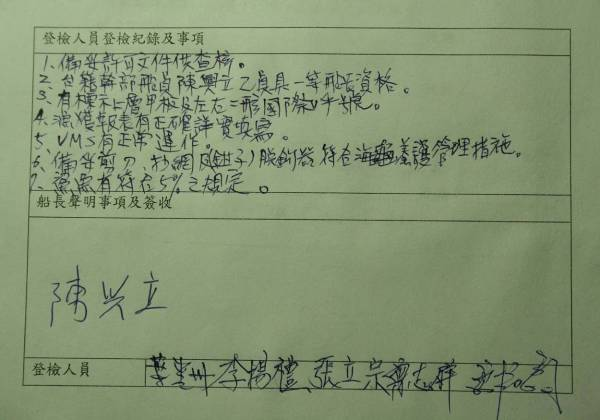 登檢人員登檢紀錄及事項
1、備妥許可文件供查核。
2、台籍幹部船員陳興立乙員具一等船長資格。
3、有標示上層甲板及左右二舷國際呼號。
4、漁獲報表有正確詳實填寫。
5、VMS有正常運作。
6、備妥剪刀、抄網及(鉗子)脫鉤器符合海龜養護管理措施。
7、鯊魚有符合5%之規定。
船長聲明事項及簽收
陳興立
登檢人員 李揚禮 張立宗